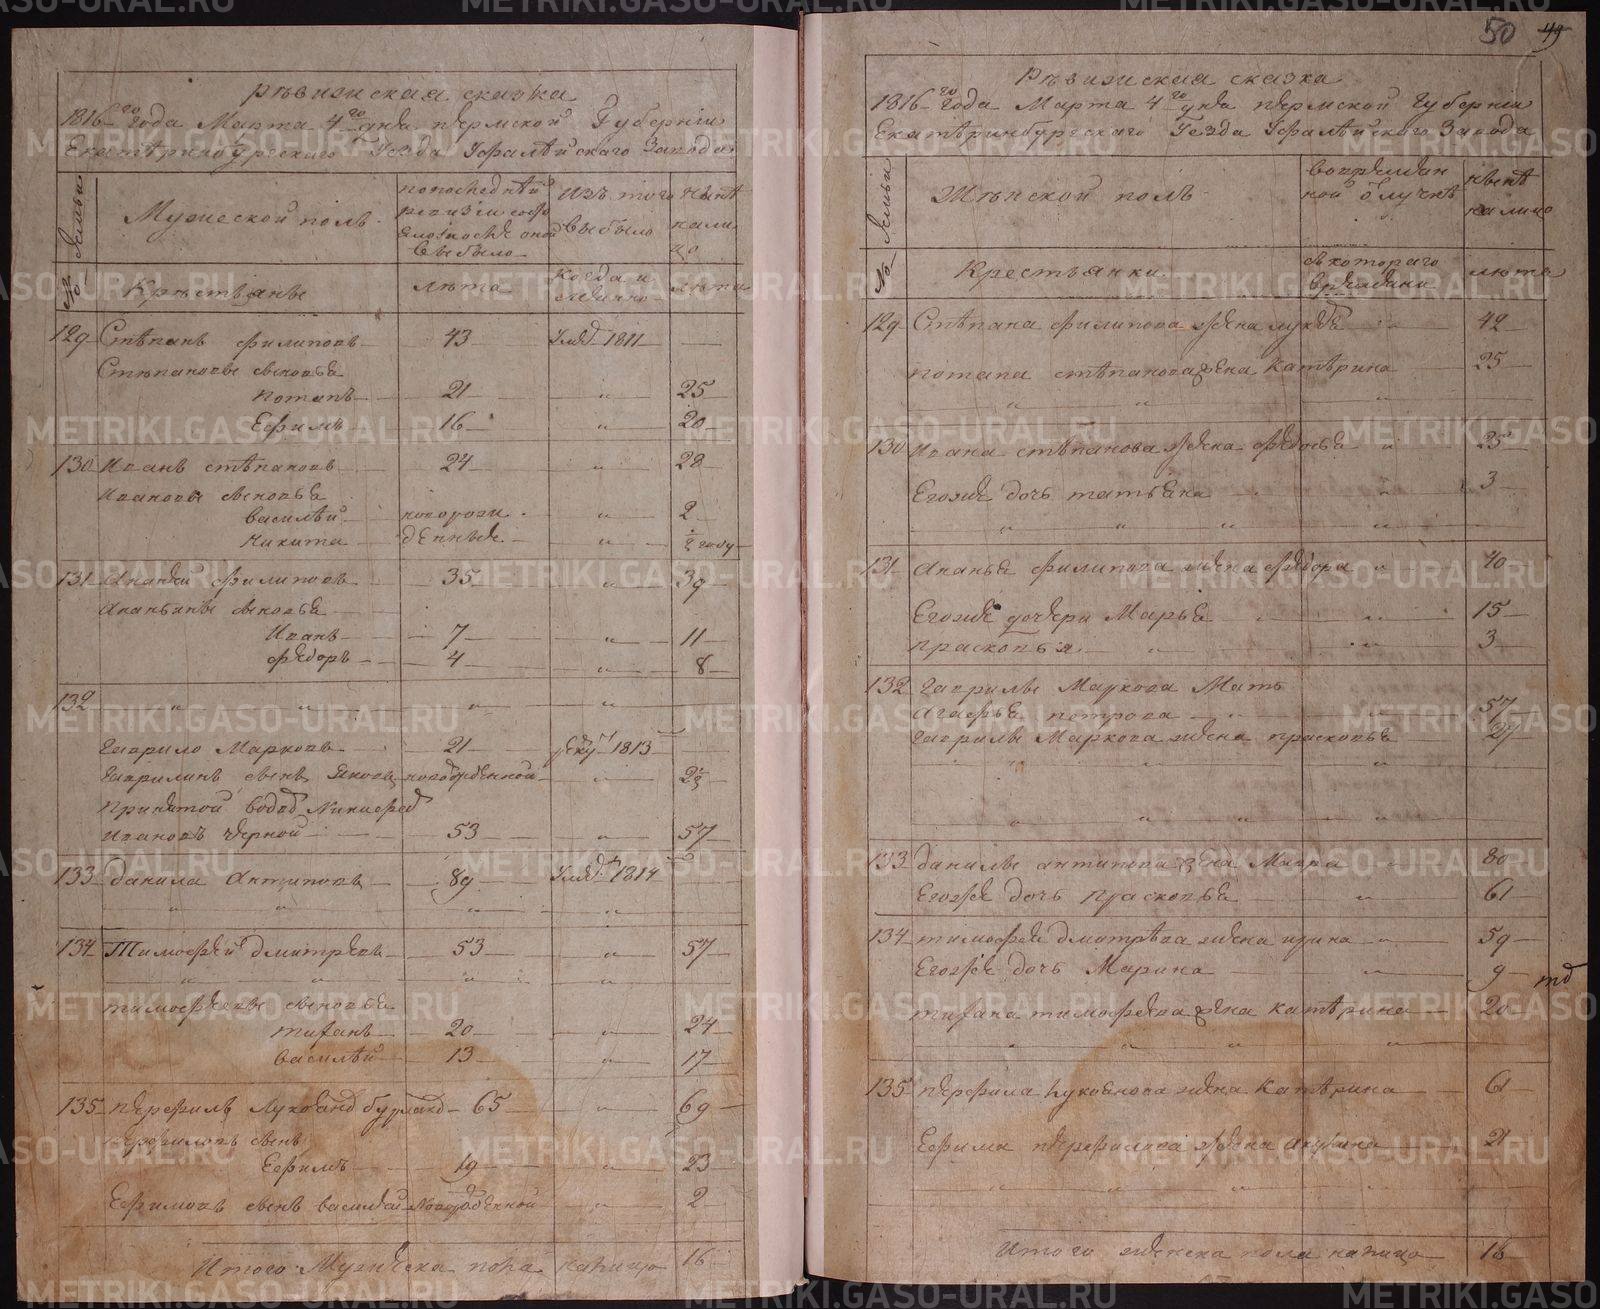 рѣвижская сказка
1816 го года Марта 4 го дня пермской Губернiи
Екатѣринбургскаго Уезда Уфалѣйскаго Завода
№ Семьи
Мужеской полъ
по последнѣй
ревизiи состо
яло и после оной
Прибыло
Изъ того
выбыло
Нынѣ
на ли
цо
Крѣстьянѣ
лѣта
когда и
лѣта
129 Стѣпанъ филиповъ 43 Умѣр 1811
Стѣпановы сыновья
потапъ 21 25
Ефимъ 16 20
130 Иванъ стѣпановъ 24 28
Ивановы сыновья
василѣй новорож 2
Никита денныя ½ году
131 Ананей филиповъ 35 39
Ананьины сыновья
Иванъ 7 11
фѣдоръ 4 8
132
Гаврило Марковъ 21 рекр 1813
Гаврилинъ сынъ Яковъ новорожденной 2½
Принятой
Ивановъ чѣрной 53 57
133 данила Антиповъ 89 Умѣр 1814
134 Тимофей дмитрѣевъ 53 57
тимофѣевы сыновья
тифанъ 20 24
василѣй 13 17
135 перфилъ 65 69
перфиловъ сынъ
Ефимъ 19 23
Ефимовъ сынъ василей новорожденной 2
Итого Мужеска пола налицо 16
50 49
Рѣвижская сказка
1816 го года Марта 4 го дня пермской Губернiи
Екатѣринбургскаго Уезда Уфалѣйскаго Завода
№ Семьи
Женской полъ
во времян
ной отлучкѣ
нынѣ
налицо
Крестьянки
с котораго
времяни
лѣта
129 Стѣпана филипова жена 42
потапа стѣпанова жена Катѣрина 25
130 Ивана стѣпанова жена фѣдосья 25
Егожѣ дочь татьяна 3
131 Ананья филипова жена 40
Егожѣ дочери Марья 15
прасковья 3
132 Гаврилы Маркова Мать
Агафья петрова 57
Гаврилы Маркова жена прасковья 27
133 данилы антипова жена Мавра 80
Егожѣ дочь прасковья 61
134 тимофея дмитрѣва жена ирина 59
Егожѣ дочь Марина 9
тифана тимофѣева жена катѣрина 20
135 перфила жена Катѣрина 61
Ефима перфилева жена акулина 21
Итого женска пола налицо 16
METRIKI.GASO-URAL.RU